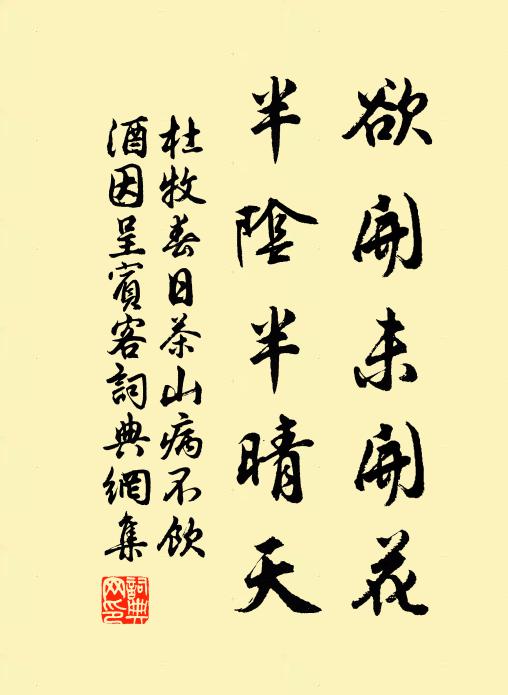 欲開未開花
半陰半晴天
杜牧春日茶山病不飲
酒因呈賓客詞典網集
詞典
网印